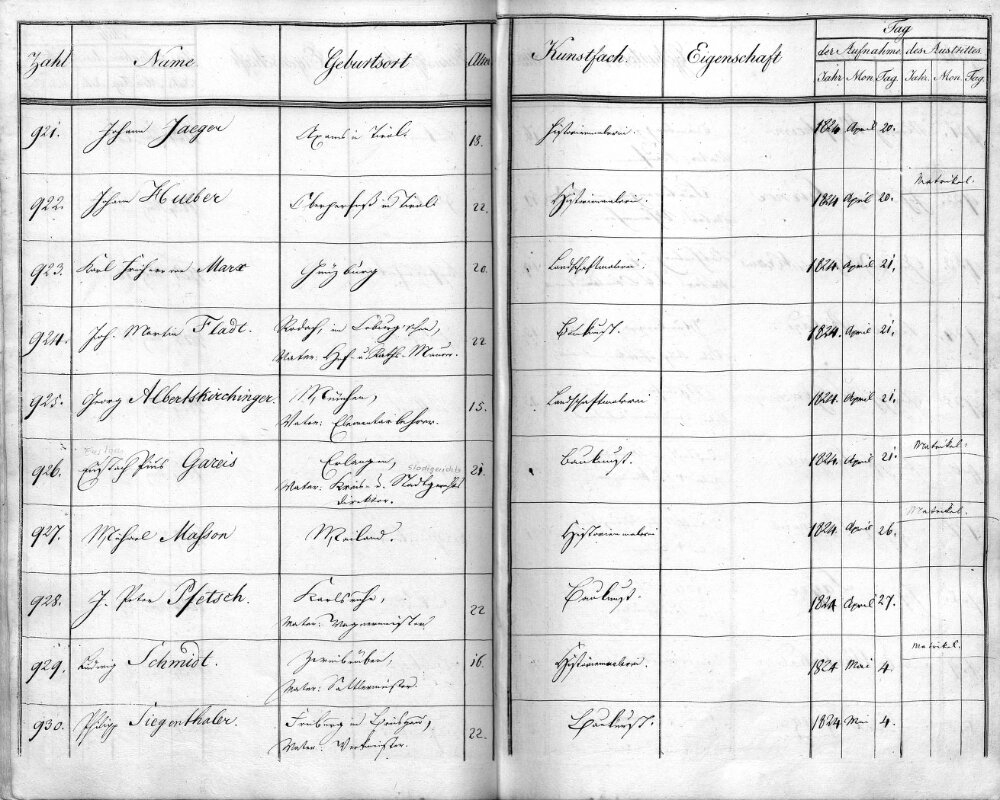 Zahl Name Geburtsort Alter Kunstfach. Eigenschaft Tag
der Aufnahme des Austrittes.
Jahr Mon. Tag. Jahr. Mon. Tag.
921. Johann Jaeger Axams in Tirol 18. Historienmalerei 1824 April 20.
Matrikel.
922. Johann Hueber Oberperfuß in Tirol 22. Historienmalerei. 1824 April 20.
923. Karl Freiherr von Marx Günzburg 20. Landschaftmalerei. 1824. April 21.
924. Joh. Martin Fladt. Rodach, im Coburg'schen, 22 Baukunst. 1824 April 21.
Vater: Hof- u. Raths-Maurer.
925. Georg Albertskirchinger. München, 15. Landschaftmalerei 1824. April 21.
Vater: Elementarlehrer.
Matrikel.
926. Eustach Pius Gareis Erlangen, 21. Baukunst. 1824. April 21.
Stadtgerichts
Vater: Kreis- u. Stadtgerichts
direktor.
Matrikel.
927. Michael Masson Mailand. Historienmalerei 1824 April 26.
928. J. Peter Pfetsch. Karlsruhe, 22 Baukunst. 1824 April 27.
Vater: Wagnermeister
Matrikel.
929. Ludwig Schmidt. Zweibrücken, 16. Historienmalerei. 1824 Mai 4.
Vater: Sattlermeister
930. Philipp Siegenthaler. Freiburg im Breisgau, 22. Baukunst. 1824 Mai 4.
Vater: Werkmeister.